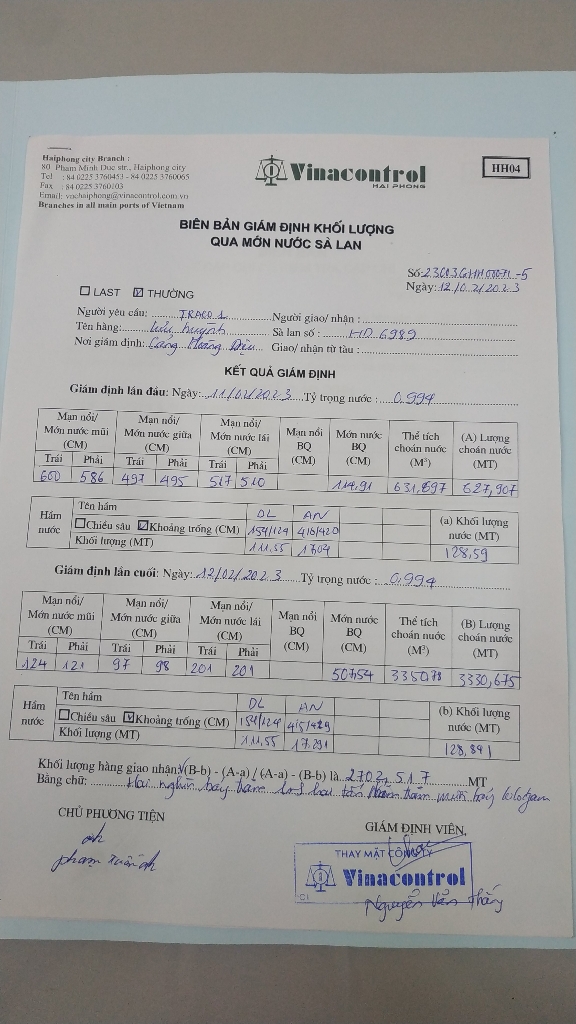 Haiphong city Branch :
80 Pham Minh Duc str., Haiphong city
Tel : 84 0225 3760453 - 84 0225 3760065
Fax : 84 0225 3760103
Email: vnchaiphong@vinacontrol.com.vn
Branches in all main ports of Vietnam
Vinacontrol
HAI PHONG
HH04
BIÊN BẢN GIÁM ĐỊNH KHỐI LƯỢNG
QUA MỚN NƯỚC SÀ LAN
Số:
Ngày: 12/02/2023
LAST THƯỜNG
Người yêu cầu: TRACO 1 Người giao/ nhận :
Tên hàng: lưu huỳnh Sà lan số : HD 6989
Nơi giám định: Cảng Hoàng Diệu Giao/ nhận từ tàu :
KẾT QUẢ GIÁM ĐỊNH
Giám định lần đầu: Ngày: 11/02/2023 Tỷ trọng nước : 0,994
Mạn nổi/ Mớn nước mũi (CM) Mạn nổi/ Mớn nước giữa (CM) Mạn nổi/ Mớn nước lái (CM) Mạn nổi BQ (CM) Mớn nước BQ (CM) Thể tích choán nước (M³) (A) Lượng choán nước (MT)
Trái Phải Trái Phải Trái Phải
600 586 497 495 517 510 114,91 631,697 627,907
Hầm nước
Tên hầm DL AN (a) Khối lượng nước (MT)
Chiều sâu Khoảng trống (CM) 154/124 418/420
Khối lượng (MT) 111,55 17,04 128,59
Giám định lần cuối: Ngày: 12/02/2023 Tỷ trọng nước : 0,994
Mạn nổi/ Mớn nước mũi (CM) Mạn nổi/ Mớn nước giữa (CM) Mạn nổi/ Mớn nước lái (CM) Mạn nổi BQ (CM) Mớn nước BQ (CM) Thể tích choán nước (M³) (B) Lượng choán nước (MT)
Trái Phải Trái Phải Trái Phải
124 121 97 98 201 201 507,54 3350,78 3330,675
Hầm nước
Tên hầm DL AN (b) Khối lượng nước (MT)
Chiều sâu Khoảng trống (CM) 154/124 415/429
Khối lượng (MT) 111,55 17,291 128,841
Khối lượng hàng giao nhận: (B-b) - (A-a) / (A-a) - (B-b) là 2702,517 MT
Bằng chữ: Hai nghìn bảy trăm linh hai tấn năm trăm mười bảy kilogam
CHỦ PHƯƠNG TIỆN
GIÁM ĐỊNH VIÊN,
THAY MẶT CÔNG TY
Vinacontrol
Nguyễn Văn Thắng